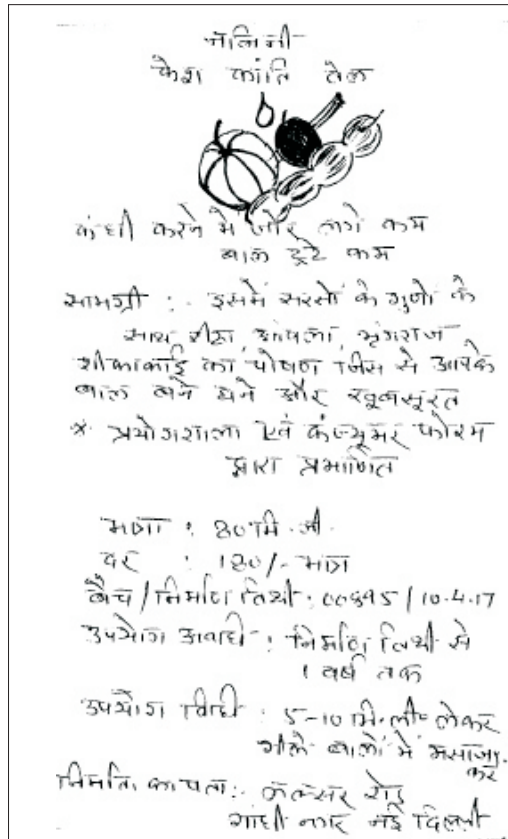 नलिनी
केश कांति तेल
कंघी करने में जोर लगे कम
बाल टूटे कम
सामग्री :- इसमें सरसों के गुणों के
साथ रीठा, आंवला, भृंगराज
शीकाकाई का पोषण जिस से आपके
बाल बने घने और खूबसूरत
* प्रयोगशाला एवं कंज्यूमर फोरम
द्वारा प्रमाणित
मात्रा : 80 मि.ली.
दर : 180/- मात्र
बैच / निर्माण तिथी : 00895 / 10.4.17
उपयोग अवधि : निर्माण तिथी से
1 वर्ष तक
उपयोग विधी : 5-10 मि.ली. लेकर
गीले बालों में मसाज
करे
निर्माता का पता :- रोड़
गांधी नगर नई दिल्ली